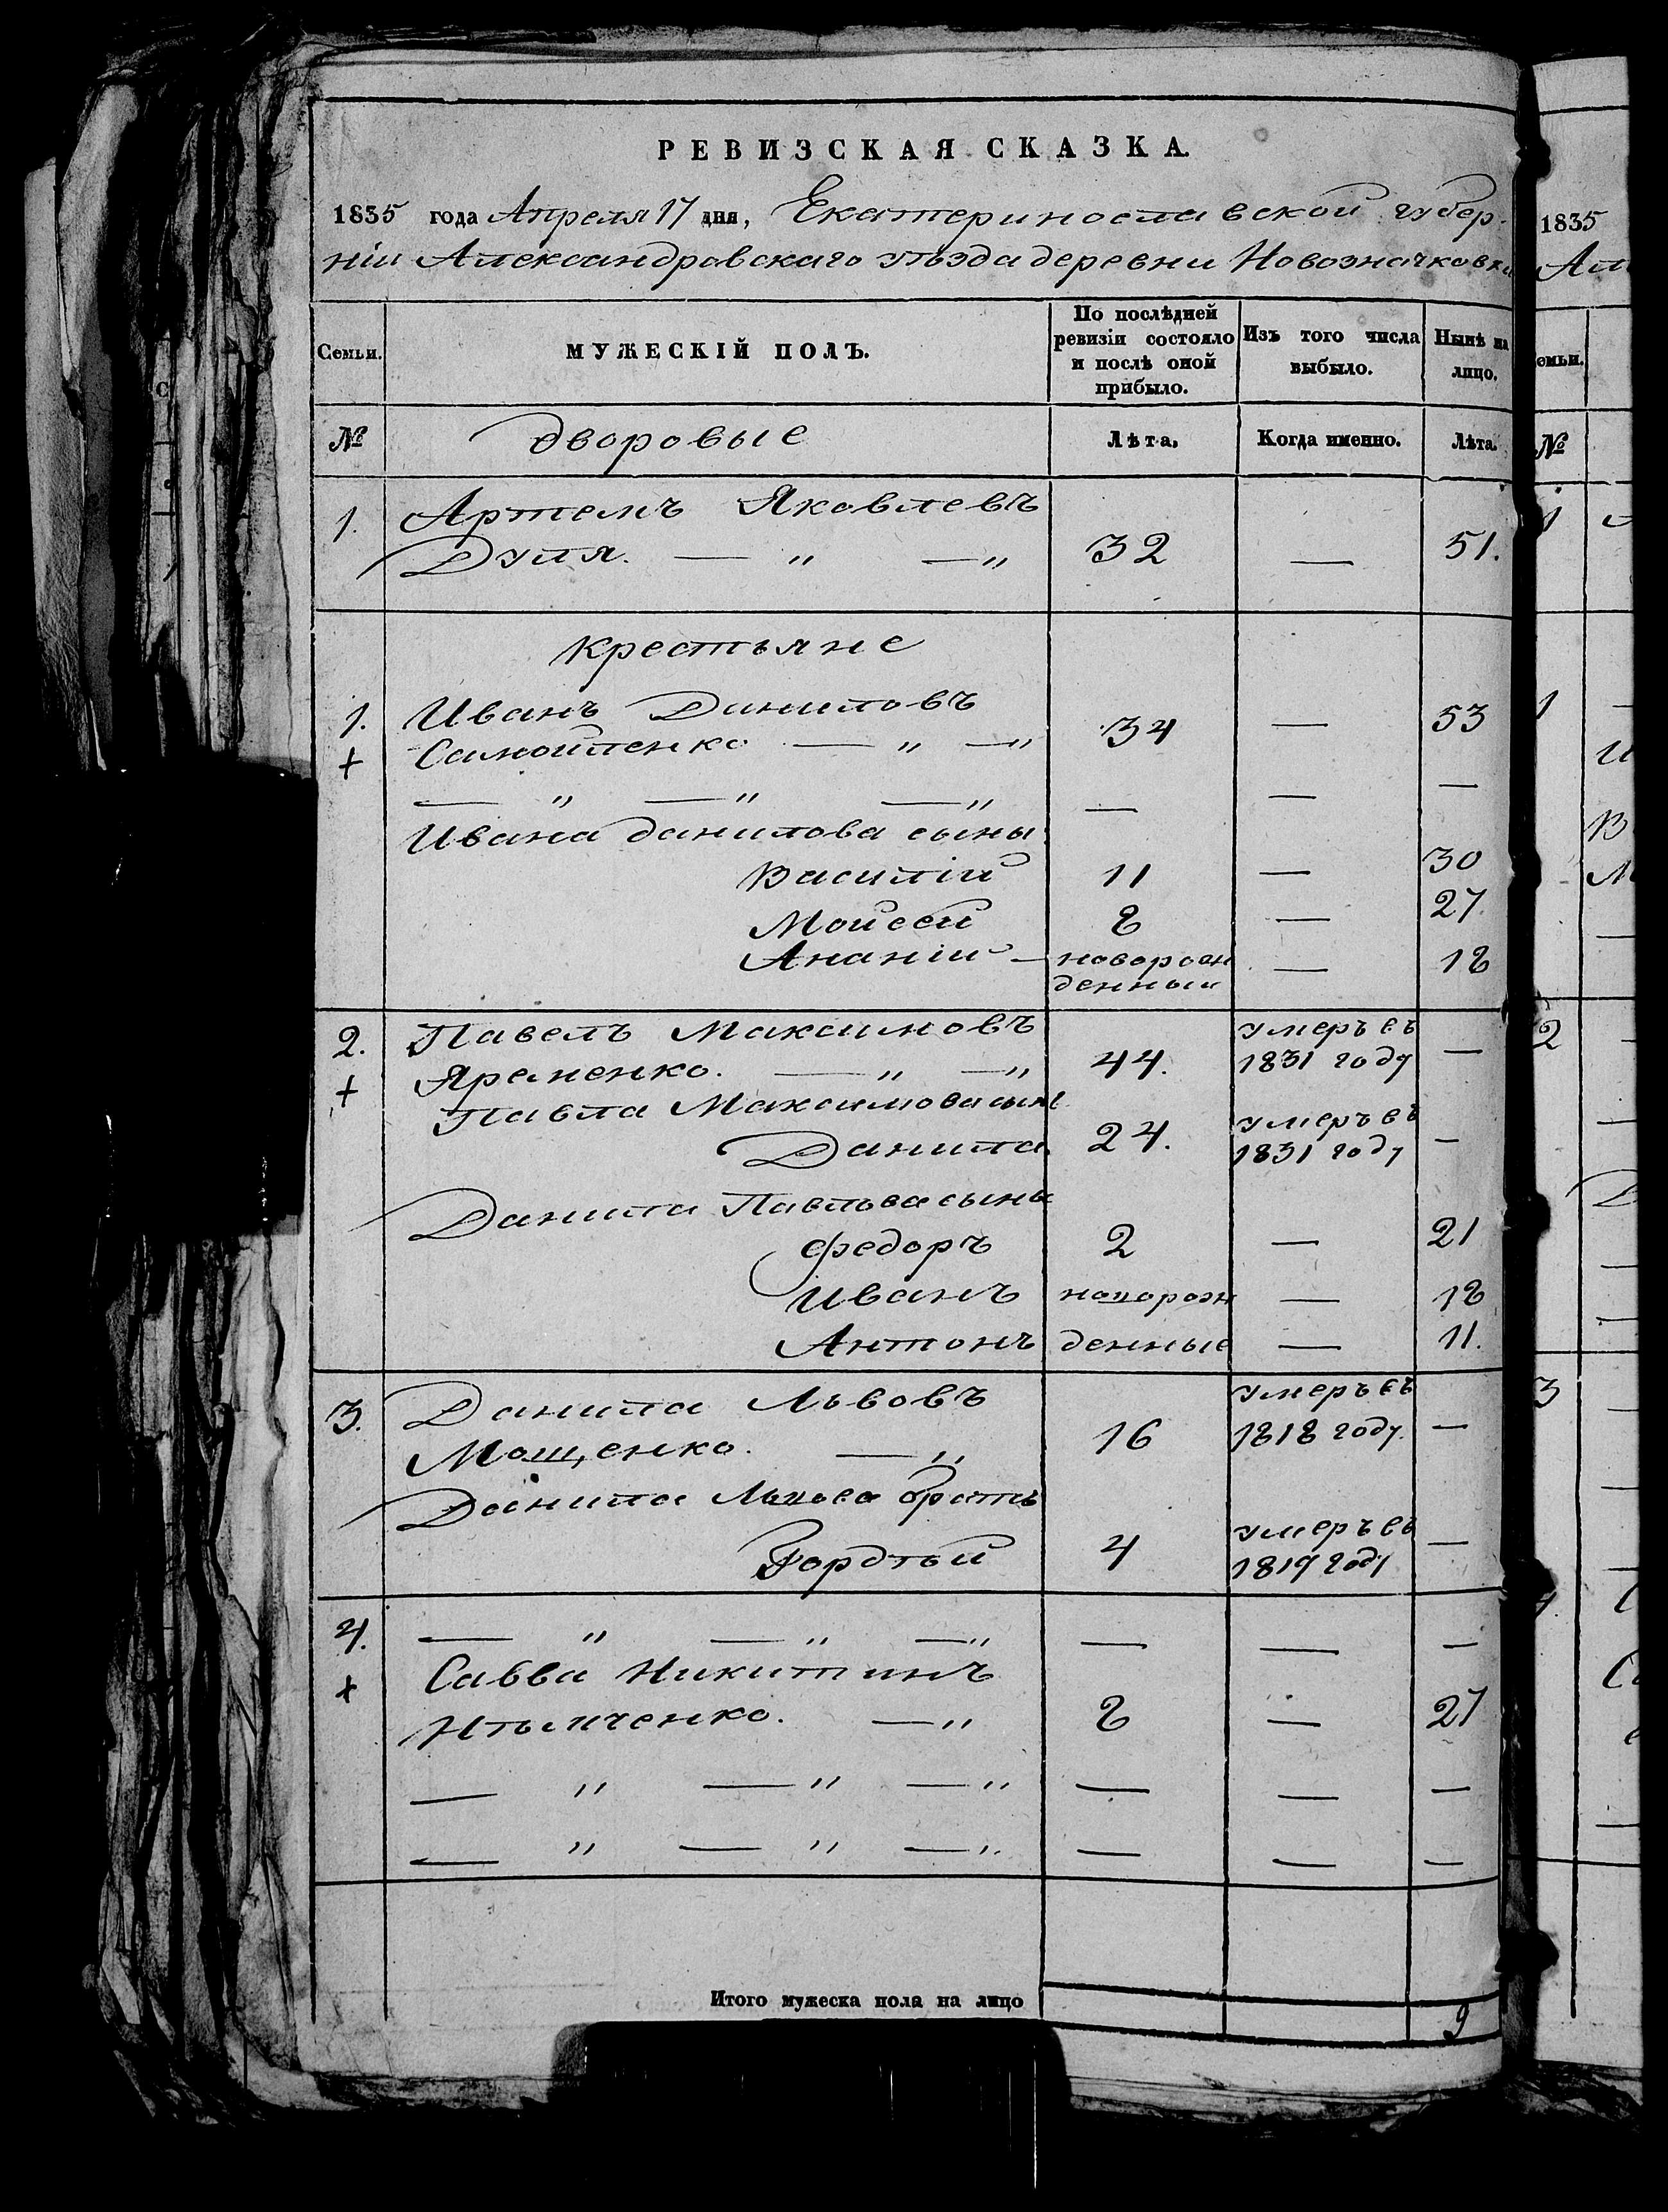 РЕВИЗСКАЯ СКАЗКА.
1835 года Апреля 17 дня, Екатеринославской губер-
ніи Александровскаго уѣзда деревни Новозначковки
Семьи. МУЖЕСКІЙ ПОЛЪ. По послѣдней ревизіи состояло и послѣ оной прибыло. Изъ того числа выбыло. Нынѣ на лицо.
№ дворовые Лѣта. Когда именно. Лѣта.
1. Артемъ Яковлевъ
Дуля. — " — " 32 — 51.
крестьяне
1. Иванъ Даниловъ
+ Самойленко — " — " 34 — 53
— " — " — " — — —
Ивана данилова сыны
Василій 11 — 30
Мойсей 8 — 27.
Ананій — новорож
денный — 18
2. Павелъ Максимовъ умеръ въ
+ Яременко. — " — " 44. 1831 году —
Павла Максимова сынъ умеръ въ
Данила 24. 1831 году —
Данила Павлова сыны
Федоръ 2 — 21
Иванъ новорож — 18
Антонъ денные — 11.
3. Данила Львовъ умеръ въ
Мощенко. — " 16 1818 году. —
Данила Львова братъ умеръ въ
Гордѣй 4 1819 году —
4. — " — " — " — — —
+ Савва Никитинъ
8 — 27
— " — " — " — — —
— " — " — " — — —
Итого мужеска пола на лицо 9
1835
Ал
емьи.
№
1
1
2
3